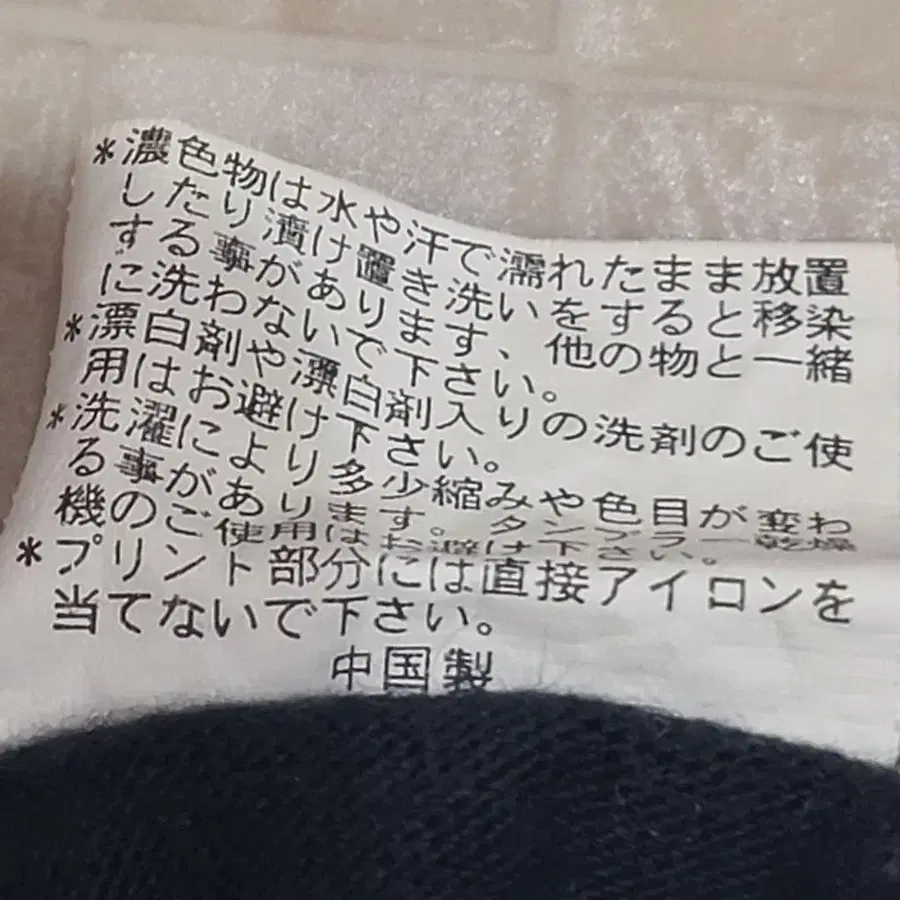 *濃色物は水や汗で濡れたまま放置
したり漬け置き洗いをすると移染
する事があります、他の物と一緒
に洗わないで下さい。
*漂白剤や漂白剤入りの洗剤のご使
用はお避け下さい。
*洗濯により多少縮みや色目が変わ
る事があります。タンブラー乾燥
機のご使用はお避け下さい。
*プリント部分には直接アイロンを
当てないで下さい。
中国製